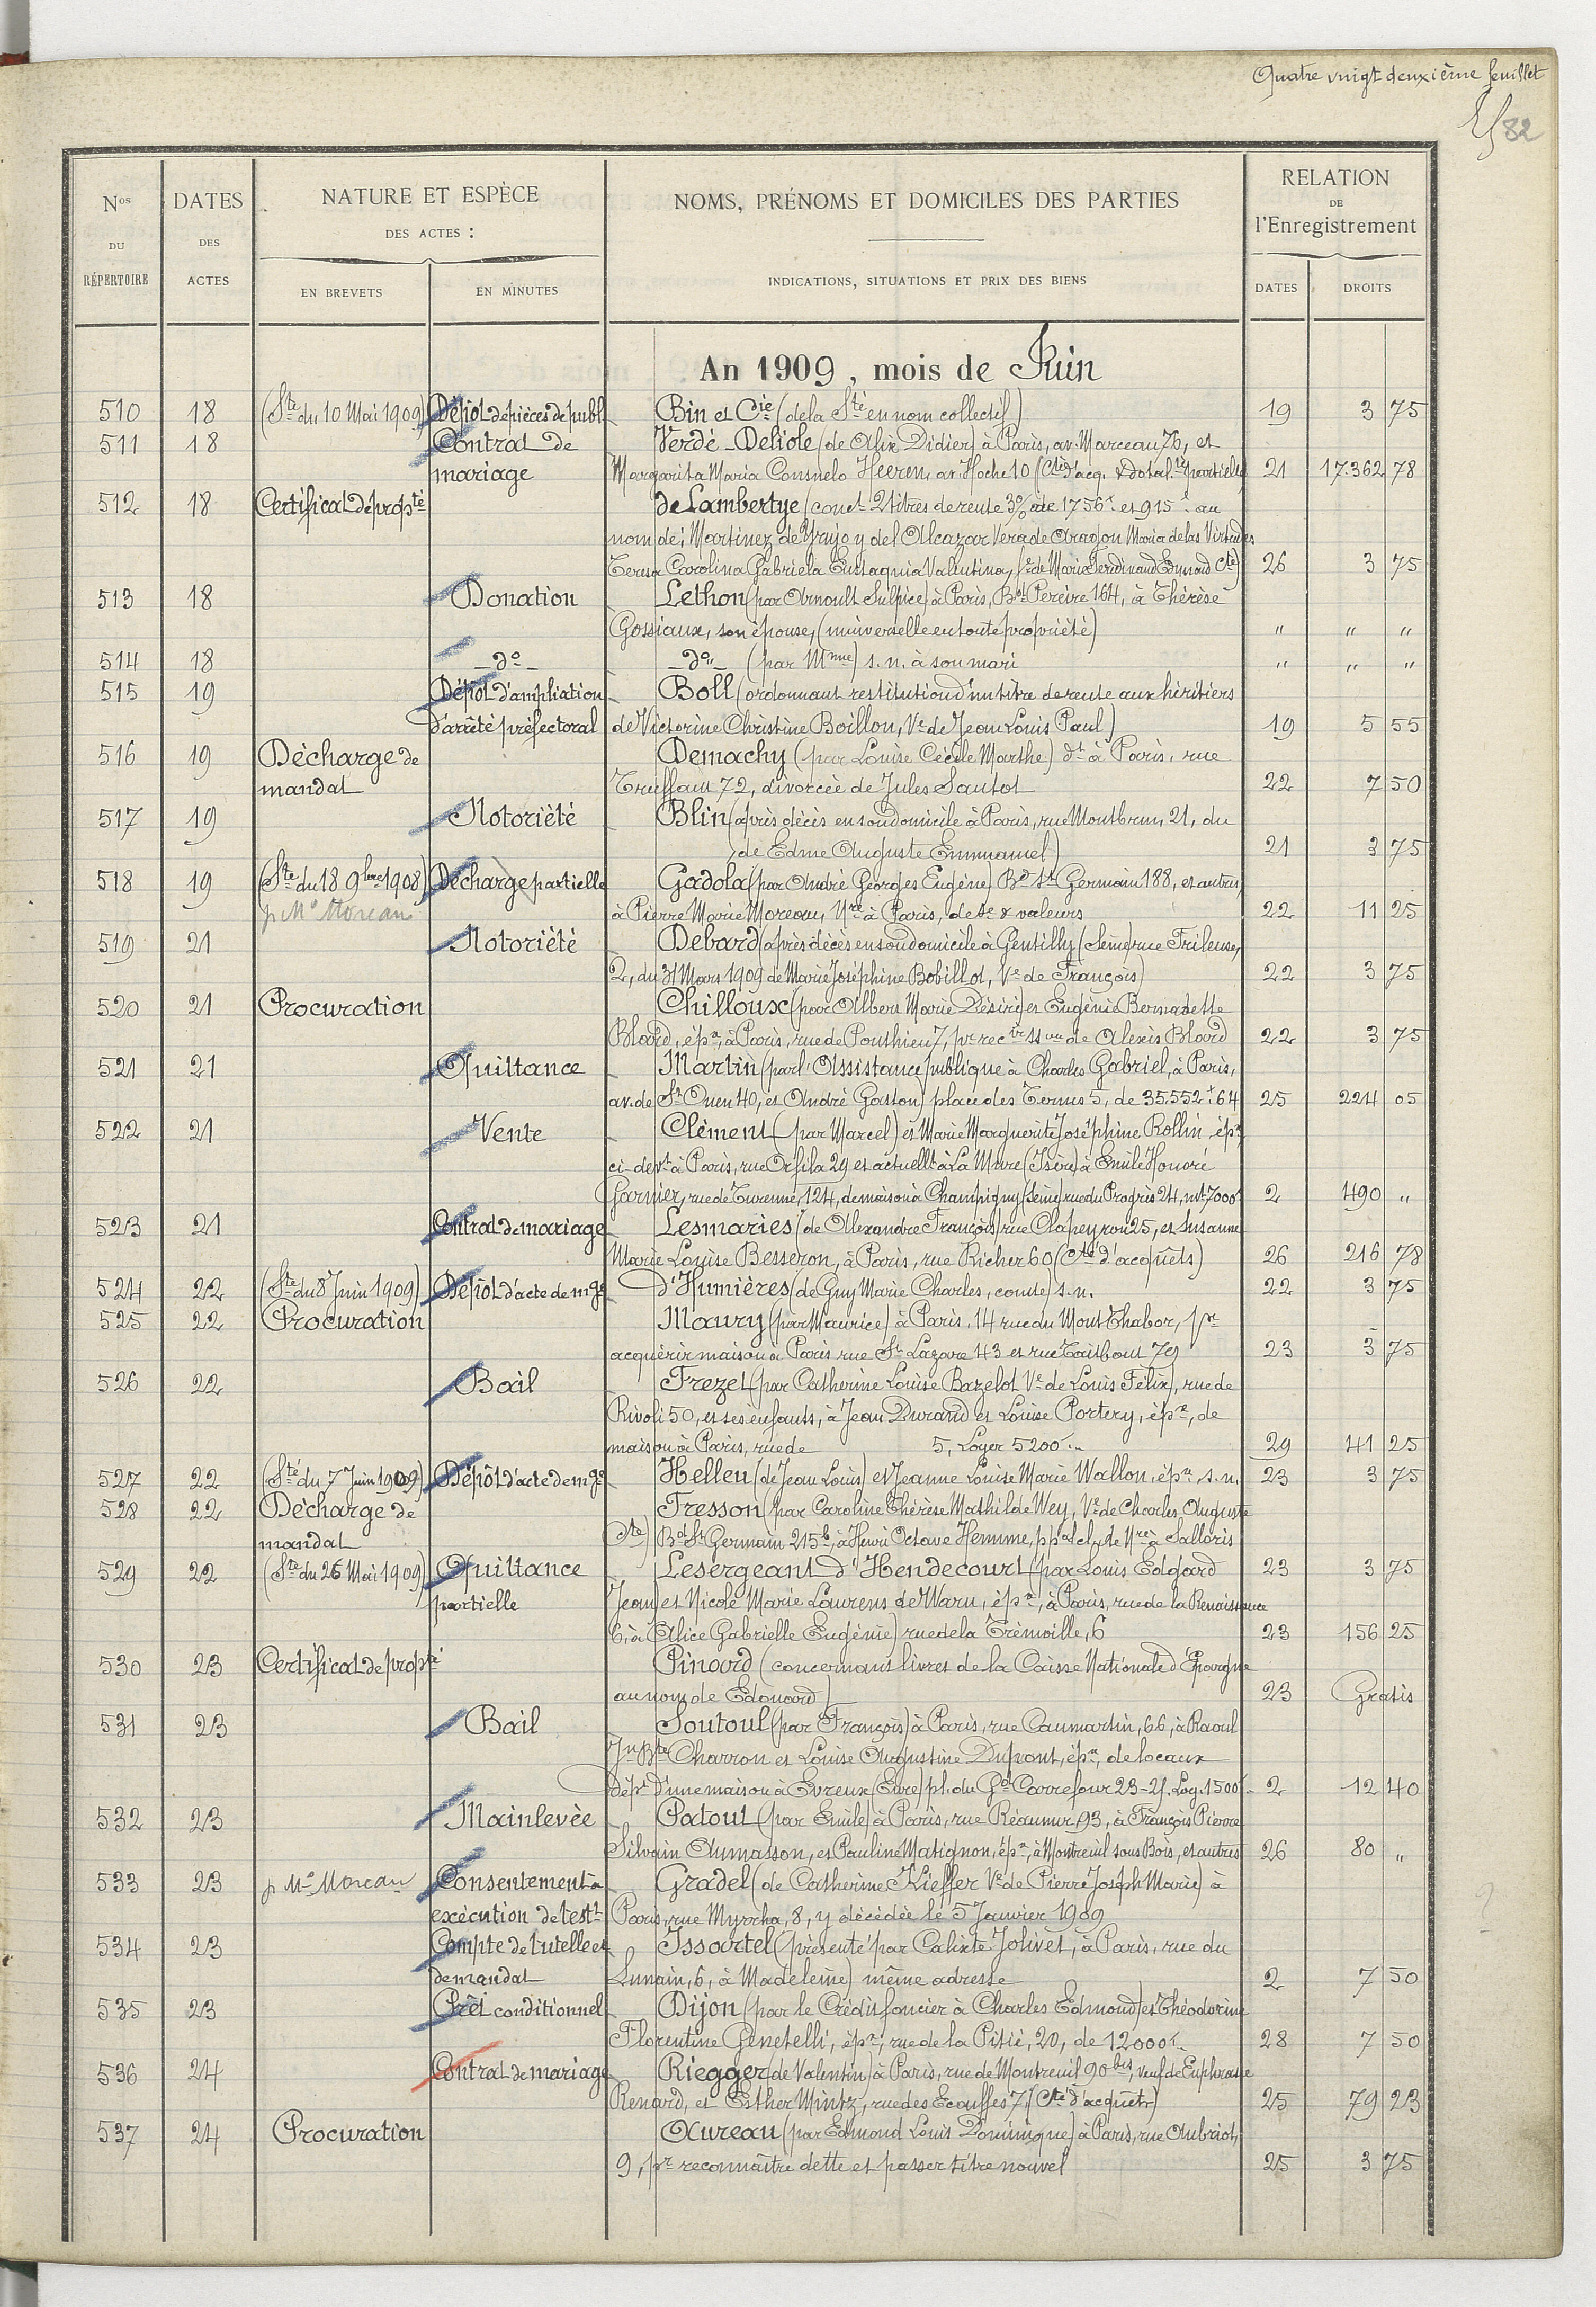 Quatre vingt deuxième feuillet
82
Nos DU RÉPERTOIRE
DATES DES ACTES
NATURE ET ESPÈCE
DES ACTES :
EN BREVETS
EN MINUTES
NOMS, PRÉNOMS ET DOMICILES DES PARTIES
INDICATIONS, SITUATIONS ET PRIX DES BIENS
RELATION
DE
l'Enregistrement
DATES
DROITS
An 1909, mois de Juin
510 18 (Ste du 10 Mai 1909) Dépôt de pièces de publ. Bin et Cie (de la Sté en nom collectif) 19 3 75
511 18 Contrat de Verdé-Delisle (de Alix Didier) à Paris, av. Marceau 76, et
mariage Margarita Maria Consuelo Heeren, av. Hoche 10 (Cté d'acq. & dotal.té partielle) 21 17.362 78
512 18 Certificat de propté de Lambertye (conct 2 titres de rente 3% de 1756f et 915f au
nom de: Martinez de Yrujo y del Alcazar Vera de Aragon Maria de las Virtudes
Teresa Carolina Gabriela Eustaquia Valentina, fe de Marie Ferdinand Edmond Cte) 26 3 75
513 18 Donation Lethon (par Arnoult Sulpice) à Paris, Bd Pereire 164, à Thérèse
Gossiaux, son épouse, (universelle en toute propriété) " " "
514 18 -do- -do- (par Mme) s.n. à son mari " " "
515 19 Dépôt d'ampliation Boll (ordonnant restitution d'un titre de rente aux héritiers
d'arrêté préfectoral de Victorine Christine Boillon, Ve de Jean Louis Paul) 19 5 55
516 19 Décharge de Demachy (par Louise Cécile Marthe) dt à Paris, rue
mandat Truffaut 72, divorcée de Jules Sautot 22 7 50
517 19 Notoriété Blin (après décès en son domicile à Paris, rue Montbrun, 21, du
de Edme Auguste Emmanuel) 21 3 75
518 19 (Ste du 18 9bre 1908) Décharge partielle Gadola (par André Georges Eugène) Bd St Germain 188, et autres,
p. Me Moreau à Pierre Marie Moreau, Nre à Paris, de se & valeurs 22 11 25
519 21 Notoriété Debard (après décès en son domicile à Gentilly (Seine) rue Frileuse,
2, du 31 Mars 1909 de Marie Joséphine Bobillot, Ve de François) 22 3 75
520 21 Procuration Chilloux (par Albert Marie Désiré) et Eugénie Bernadette
Blard, épx, à Paris, rue de Ponthieu 7, pr recir ssion de Alexis Blard 22 3 75
521 21 Quittance Martin (par l'Assistance publique à Charles Gabriel, à Paris,
av. de St Ouen 40, et André Gaston) place des Ternes 5, de 35.552f 64 25 224 05
522 21 Vente Clément (par Marcel) et Marie Marguerite Joséphine Rollin, épx,
ci-devt à Paris, rue Orfila 29 et actuellt à La Mure (Isère) à Emile Honoré
Garnier, rue de Turenne, 124, de maison à Champigny (Seine) rue du Progrès 24, mt 7000f 2 490 "
523 21 Contrat de mariage Lesmaries (de Alexandre François) rue Clapeyron 25, et Susanne
Marie Louise Besseron, à Paris, rue Richer 60 (Cté d'acquêts) 26 216 78
524 22 (Ste du 8 Juin 1909) Dépôt d'acte de mge d'Humières (de Guy Marie Charles, comte) s.n. 22 3 75
525 22 Procuration Maury (par Maurice) à Paris, 14 rue du Mont Thabor, pr
acquérir maison à Paris rue St Lazare 43 et rue Taitbout 79 23 3 75
526 22 Bail Frezet (par Catherine Louise Bazelot Ve de Louis Félix), rue de
Rivoli 50, et ses enfants, à Jean Durand et Louise Portery, épx, de
maison à Paris, rue de 5, Loyer 5200f 29 41 25
527 22 (Ste du 7 Juin 1909) Dépôt d'acte de mge Helleu (de Jean Louis) et Jeanne Louise Marie Wallon, épx, s.n. 23 3 75
528 22 Décharge de Fresson (par Caroline Thérèse Mathilde Wey, Ve de Charles Auguste
mandat Cte) Bd St Germain 215b, à Henri Octave Hemme, ppal clerc de Nre à
529 22 (Ste du 26 Mai 1909) Quittance Lesergeant d'Hendecourt (par Louis Edgard 23 3 75
partielle Jean) et Nicole Marie Laurens de Waru, épx, à Paris, rue de la Renaissance
6, à Alice Gabrielle Eugénie) rue de la Trémoille, 6 23 156 25
530 23 Certificat de propté Pinard (concernant livret de la Caisse Nationale d'Epargne
au nom de Edouard) 23 Gratis
531 23 Bail Soutoul (par François) à Paris, rue Caumartin, 66, à Raoul
Jn Bte Charron et Louise Augustine Dupont, épx, de locaux
dépt d'une maison à Evreux (Eure) pl. du Gd Carrefour 23-25. Loy. 1500f 2 12 40
532 23 Mainlevée Patout (par Emile) à Paris, rue Réaumur 93, à François Pierre
Silvain Aumasson, et Pauline Matignon, épx, à Montreuil sous Bois, et autres 26 80 "
533 23 p. Me Moreau Consentement à Gradel (de Catherine Kieffer Ve de Pierre Joseph Marie) à
exécution de testt Paris, rue Myrrha, 8, y décédée le 5 Janvier 1909
534 23 Compte de tutelle et Issartel (présenté par Calixte Jolivet, à Paris, rue du
de mandat Lunain, 6, à Madeleine) même adresse 2 7 50
535 23 Prêt conditionnel Dijon (par le Crédit foncier à Charles Edmond) et Théodorine
Florentine Genetelli, épx, rue de la Pitié, 20, de 12000f 28 7 50
536 24 Contrat de mariage Riegger (de Valentin) à Paris, rue de Montreuil 90bis, veuf de Euphrasie
Renard, et Esther Mintz, rue des Ecouffes 7 (Cté d'acquêts) 25 79 23
537 24 Procuration Aureau (par Edmond Louis Dominique) à Paris, rue Aubriot,
9, pr reconnaître dette et passer titre nouvel 25 3 75